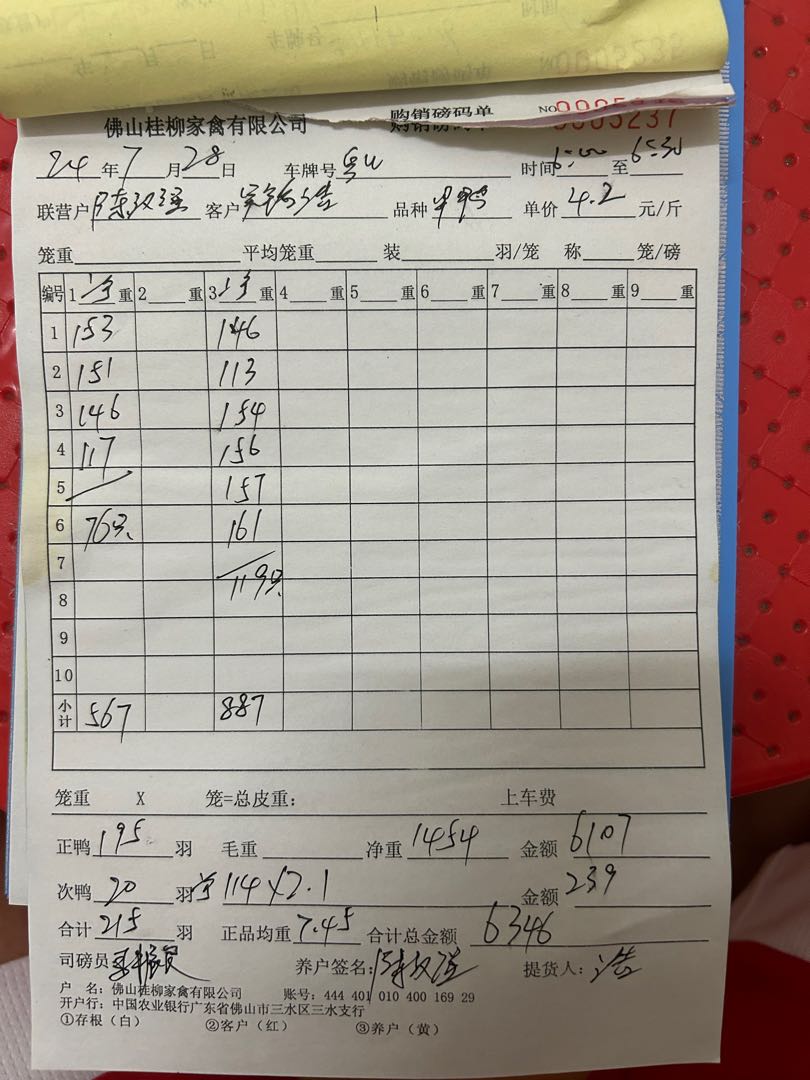 佛山桂柳家禽有限公司 购销磅码单 NO 0005237
24年7月28日 车牌号 粤 时间6:00至6:30
联营户 陈 客户 浩 品种 单价4.2元/斤
笼重 平均笼重 装 羽/笼 称 笼/磅
编号 1 净 重 2 重 3 净 重 4 重 5 重 6 重 7 重 8 重 9 重
1 153 146
2 151 113
3 146 154
4 117 156
5 157
6 76只 161
7
8 119只
9
10
小计 567 887
笼重 X 笼=总皮重: 上车费
正鸭195羽 毛重 净重1454 金额6107
次鸭20羽 净 114×2.1 金额239
合计215羽 正品均重7.45 合计总金额6346
司磅员 养户签名: 陈 提货人: 浩
户 名: 佛山桂柳家禽有限公司 账号: 444 401 010 400 169 29
开户行: 中国农业银行广东省佛山市三水区三水支行
①存根(白) ②客户(红) ③养户(黄)